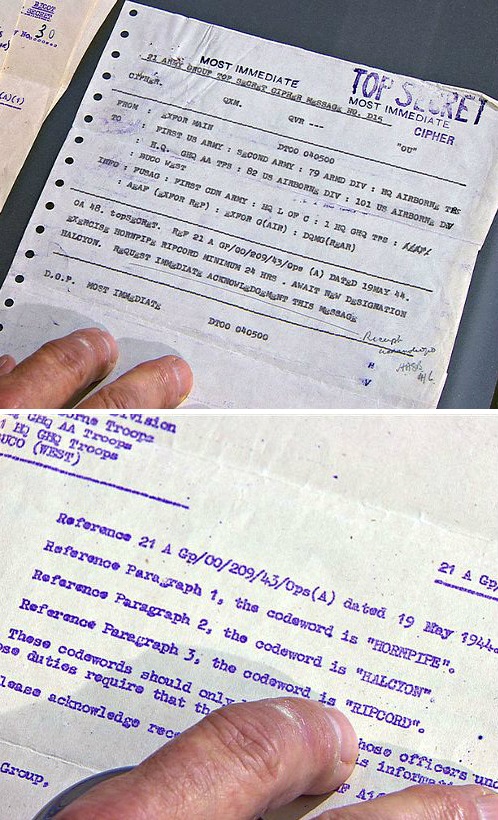 BIGOT
SECRET
No. 30
(A)(1)
MOST IMMEDIATE
TOP SECRET
21 ARMY GROUP TOP SECRET CIPHER MESSAGE HQ. D15
MOST IMMEDIATE
CIPHER.
QXM.
QVR ---
CIPHER
FROM : EXFOR MAIN
DTOO 040500
"OU"
TO : FIRST US ARMY : SECOND ARMY : 79 ARMD DIV : HQ AIRBORNE TPS
: H.Q. GHQ AA TPS : 82 US AIRBORNE DIV : 101 US AIRBORNE DIV
: BUCO WEST
INFO : FUSAG : FIRST CDN ARMY : HQ L OF C : 1 HQ GHQ TPS :
: AEAF (EXFOR REF) : EXFOR G(AIR) : DQMG(REAR)
OA 48. topSECRET. REF 21 A GP/00/209/43/Ops (A) DATED 19MAY 44.
EXERCISE HORNPIPE RIPCORD MINIMUM 24 HRS . AWAIT NEW DESIGNATION
HALCYON. REQUEST IMMEDIATE ACKNOWLEDGEMENT THIS MESSAGE
D.O.P. MOST IMMEDIATE
DTOO 040500
Receipt
H
V
Division
orne Troops
GHQ AA Troops
HQ GHQ Troops
BUCO (WEST)
21 A Gp
Reference 21 A Gp/00/209/43/Ops(A) dated 19 May 1944.
Reference Paragraph 1, the codeword is "HORNPIPE".
Reference Paragraph 2, the codeword is "HALCYON".
Reference Paragraph 3, the codeword is "RIPCORD".
These codewords should only hose officers und
ose duties require that th is informat
lease acknowledge rece
Group,